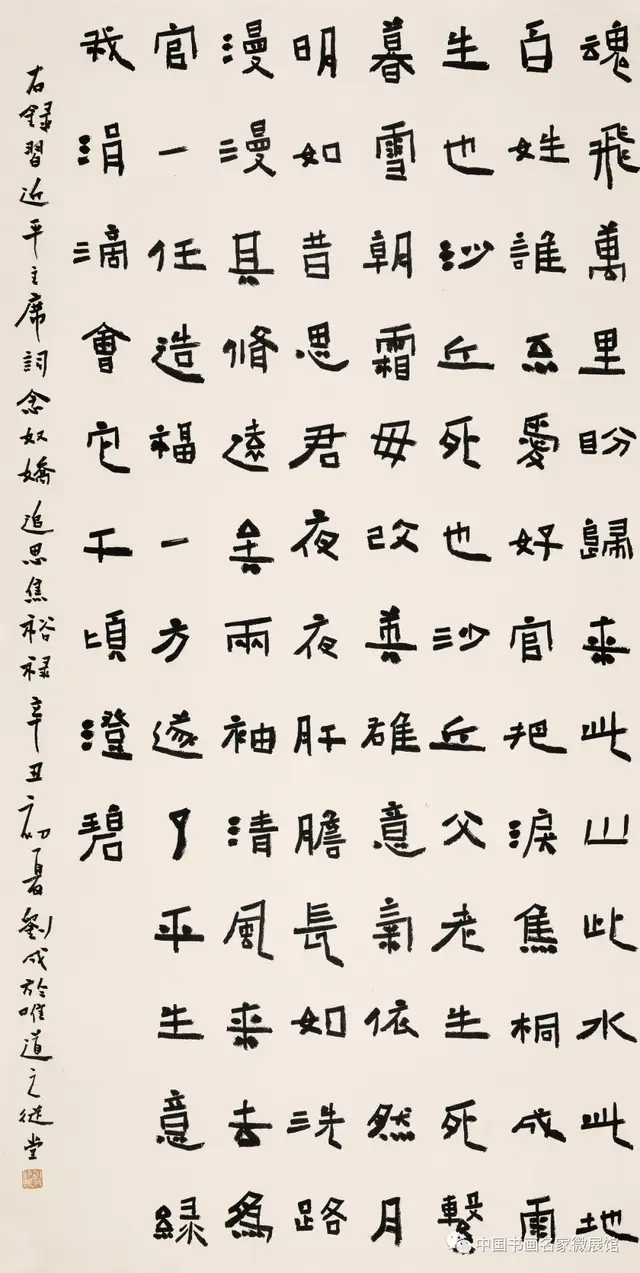 魂飛萬里盼歸来此山此水此地
百姓誰不愛好官把淚焦桐成雨
生也沙丘死也沙丘父老生死繫
暮雪朝霜毋改英雄意氣依然月
明如昔思君夜夜肝膽長如洗路
漫漫其脩遠矣兩袖清風来去為
官一任造福一方遂了平生意緑
我涓滴會它千頃澄碧
右録習近平主席詞念奴嬌追思焦裕禄辛丑初夏劉成於唯道之從堂
中国书画名家微展馆